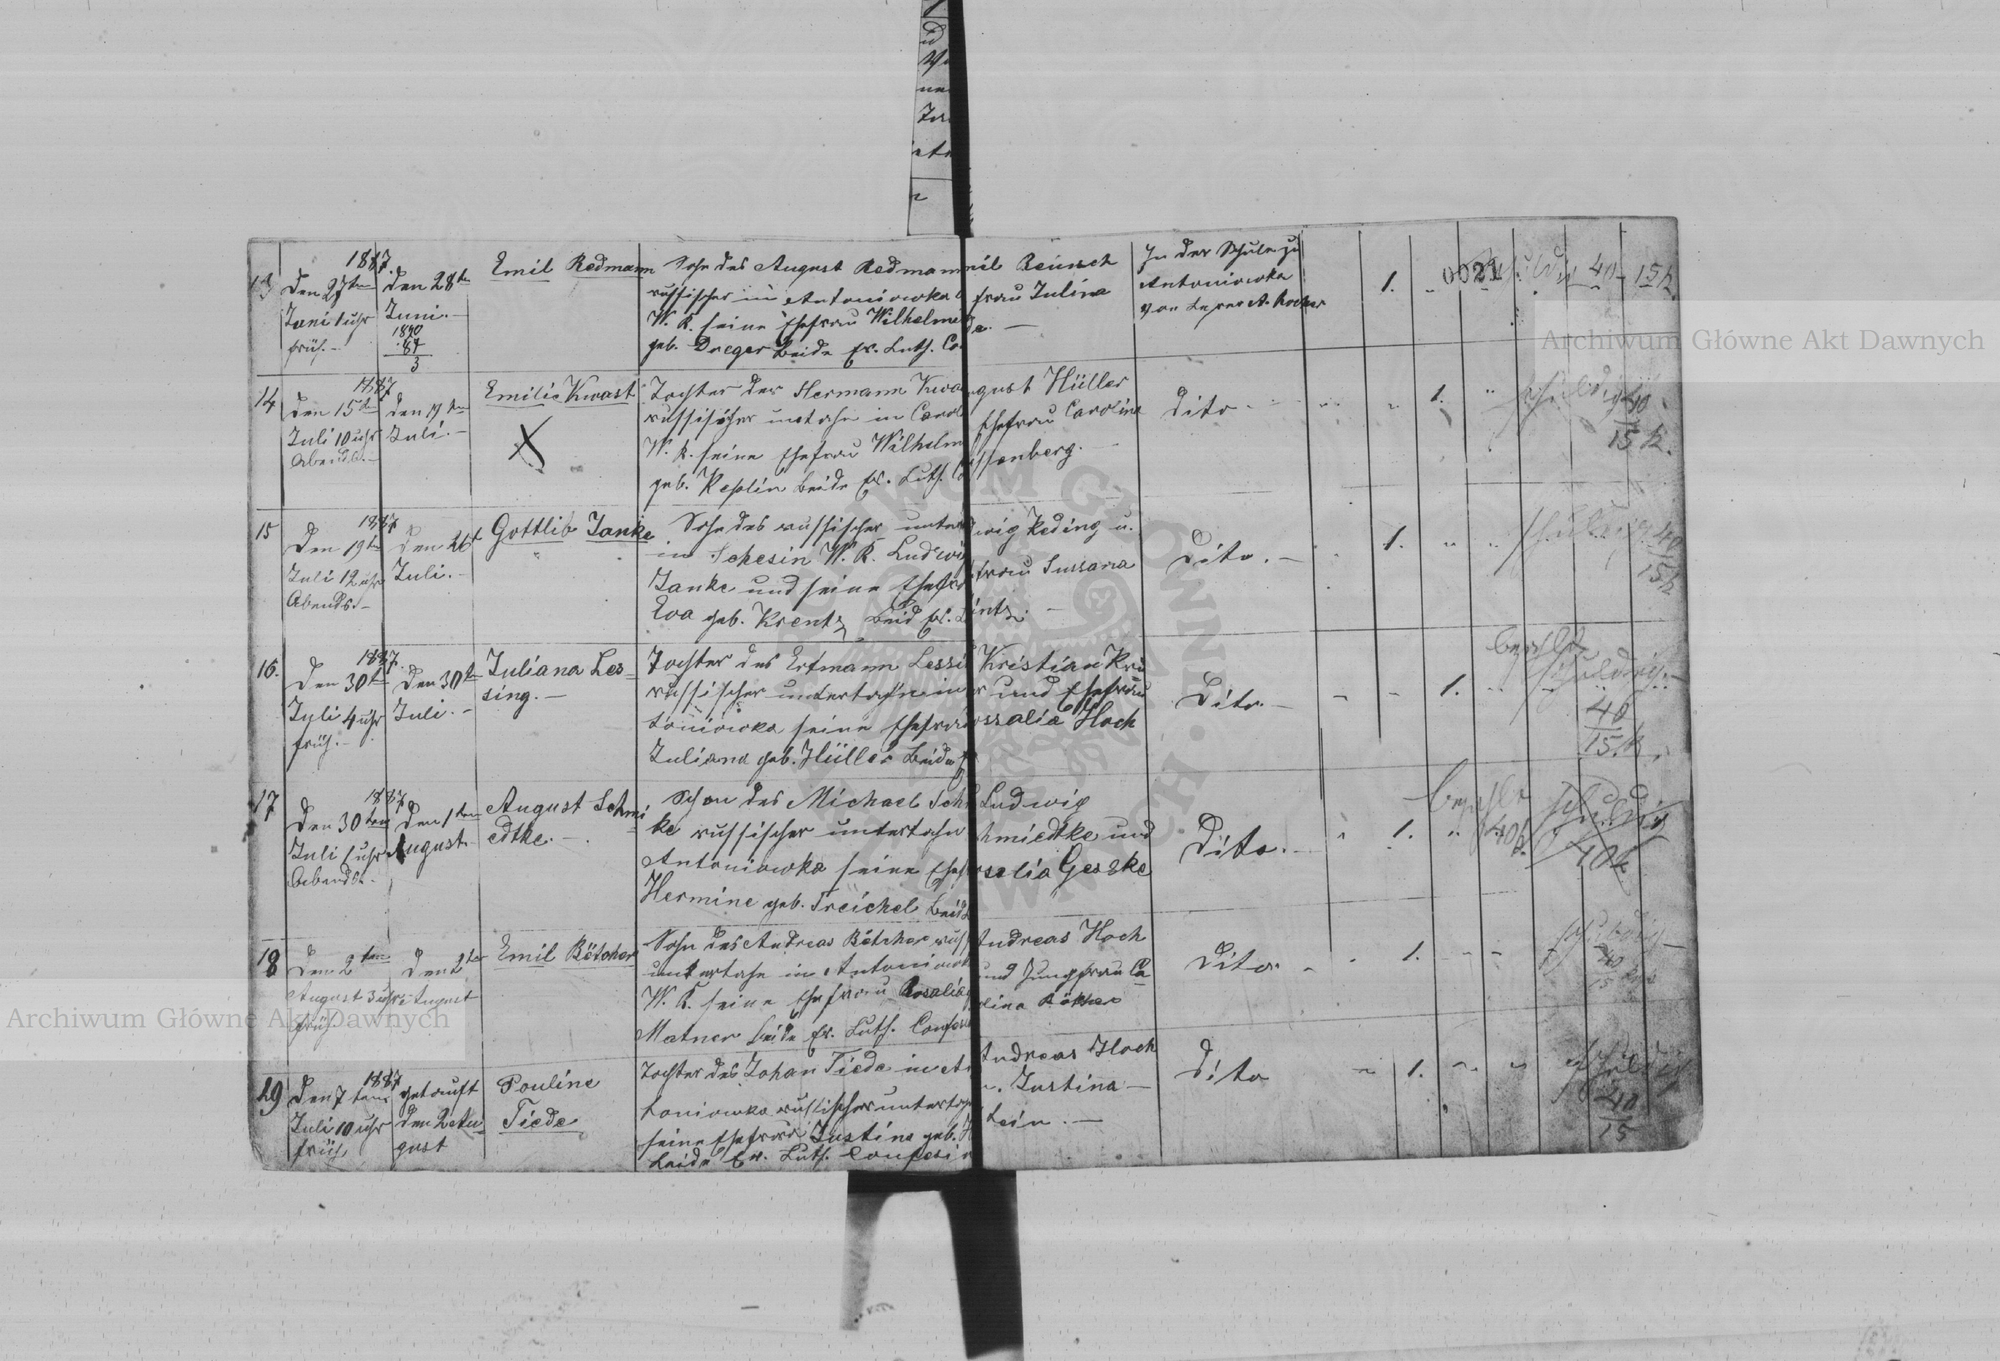 13
1887.
Den 27ten
Juni 1 uhr
früh. -
den 28ten
Juni. -
1890
87
3
Emil Redmann
Sohn des August Redmann
russischer in Antoniowka
W. R. seine Ehefrau Wilhelme
geb. Dreger beide Ev. Luth. Co
Reinsch
frau Julina
In der Schule zu
Antoniowka
1.
0021
40 15 k.
14
1887
Den 15ten
Juli 10 uhr
Abends. -
den 17ten
Juli. -
Emilie Kwast
X
Tochter des Hermann Kwa
russischer untahn in Carol
W. R. seine Ehefrau Wilhelm
geb. Replin beide Ev. Luth.
gust Hüller
Ehefrau Carolina
ssenberg. -
Dito
1.
schuldig 40
15 k.
15
1887
Den 19ten
Juli 12 uhr
Abends. -
Den 26t
Juli. -
Gottlib Janke
Sohn des russischer unter
in Schesin W. R. Ludwig
Janke und seine Ehefr
Eva geb. Krentz beid Ev.
wig Reding u.
frau Sussana
intz. -
Dito. -
1.
schuldig 40
15 k
16.
1887.
Den 30ten
Juli 4 uhr
früh. -
Den 30ten
Juli. -
Juliana Les-
sing. -
Tochter des Ertmann Lessi
russischer untertahn in
toniowka seine Ehefrau
Juliana geb. Hüller beide
Kristian Kri
und Ehefrau
ssalia Hoch
Dito. -
1.
bezahlt
schuldig. -
40
15 k.
17
1887
Den 30ten
Juli 1 uhr
Abends. -
Den 1ten
August
August Schmi
edtke. -
Sohn des Michael Sch
ke russischer untertahn
Antoniowka seine Ehef
Hermine geb. Treichel beid
Ludwig
hmiedtke und
salia Geszke
Dito. -
1.
bezahlt
40 k.
schuldig
40 k
18
Den 2ten
August 3 uhr
früh.
Den 2ten
August
Emil Bötcher
Sohn des Andreas Bötcher russ
untertahn in Antoniowk
W. R. seine Ehefrau Rosalia
Matner beide Ev. Luth. Confess
Andreas Hoch
und Jungfrau Ca
rlina
Dito. -
1.
schuldig -
40
15
19
1887
Den 7ten
Juli 10 uhr
früh.
getauft
den 2 Au-
gust
Pouline
Tiede
Tochter des Johan Tiede in
toniowka russischer unterta
seine Ehefrau Justine geb.
beide Ev. Luth. Confesi
Andreas Hoch
u. Justina -
tein. -
Dito
1.
schuldig
40
15
Archiwum Główne Akt Dawnych
Archiwum Główne Akt Dawnych